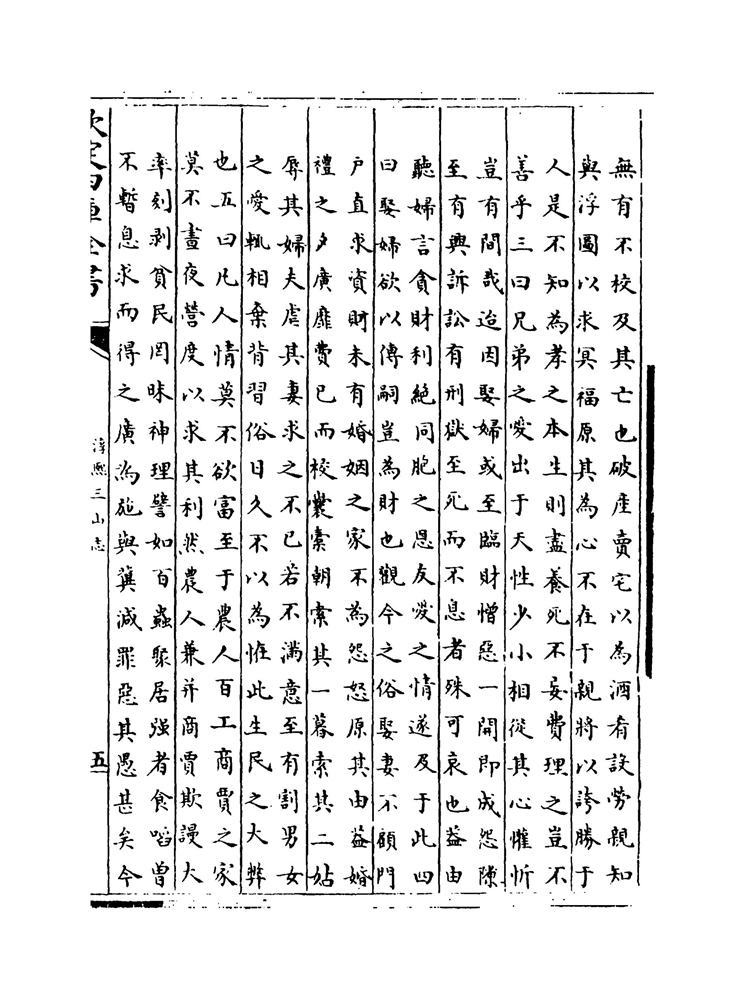 無有不校及其亡也破産賣宅以為酒肴設勞親知
與浮圖以求冥福原其為心不在于親將以誇勝于
人是不知為孝之本生則盡養死不妄費理之豈不
善乎三曰兄弟之愛出于天性少小相從其心懽忻
豈有間哉迨因娶婦或至臨財憎惡一開即成怨隙
至有興訴訟有刑獄至死而不息者殊可哀也葢由
聽婦言貪財利絶同胞之恩友愛之情遂及于此四
曰娶婦欲以傳嗣豈為財也觀今之俗娶妻不顧門
户直求資財未有婚姻之家不為怨怒原其由葢婚
禮之夕廣靡費已而校奩橐朝索其一暮索其二姑
辱其婦夫虐其妻求之不已若不滿意至有割男女
之愛輒相棄背習俗日久不以為怪此生民之大弊
也五曰凡人情莫不欲富至于農人百工商賈之家
莫不晝夜營度以求其利然農人兼并商賈欺謾大
率刻剥貧民罔昧神理譬如百蟲聚居强者食啗曾
不暫息求而得之廣為施與冀減罪惡其愚甚矣今
欽定四庫全書
淳熙三山志
五